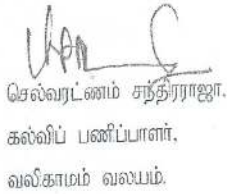 செல்வரட்ணம் சந்திரராஜா,
கல்விப் பணிப்பாளர்,
வலிகாமம் வலயம்.